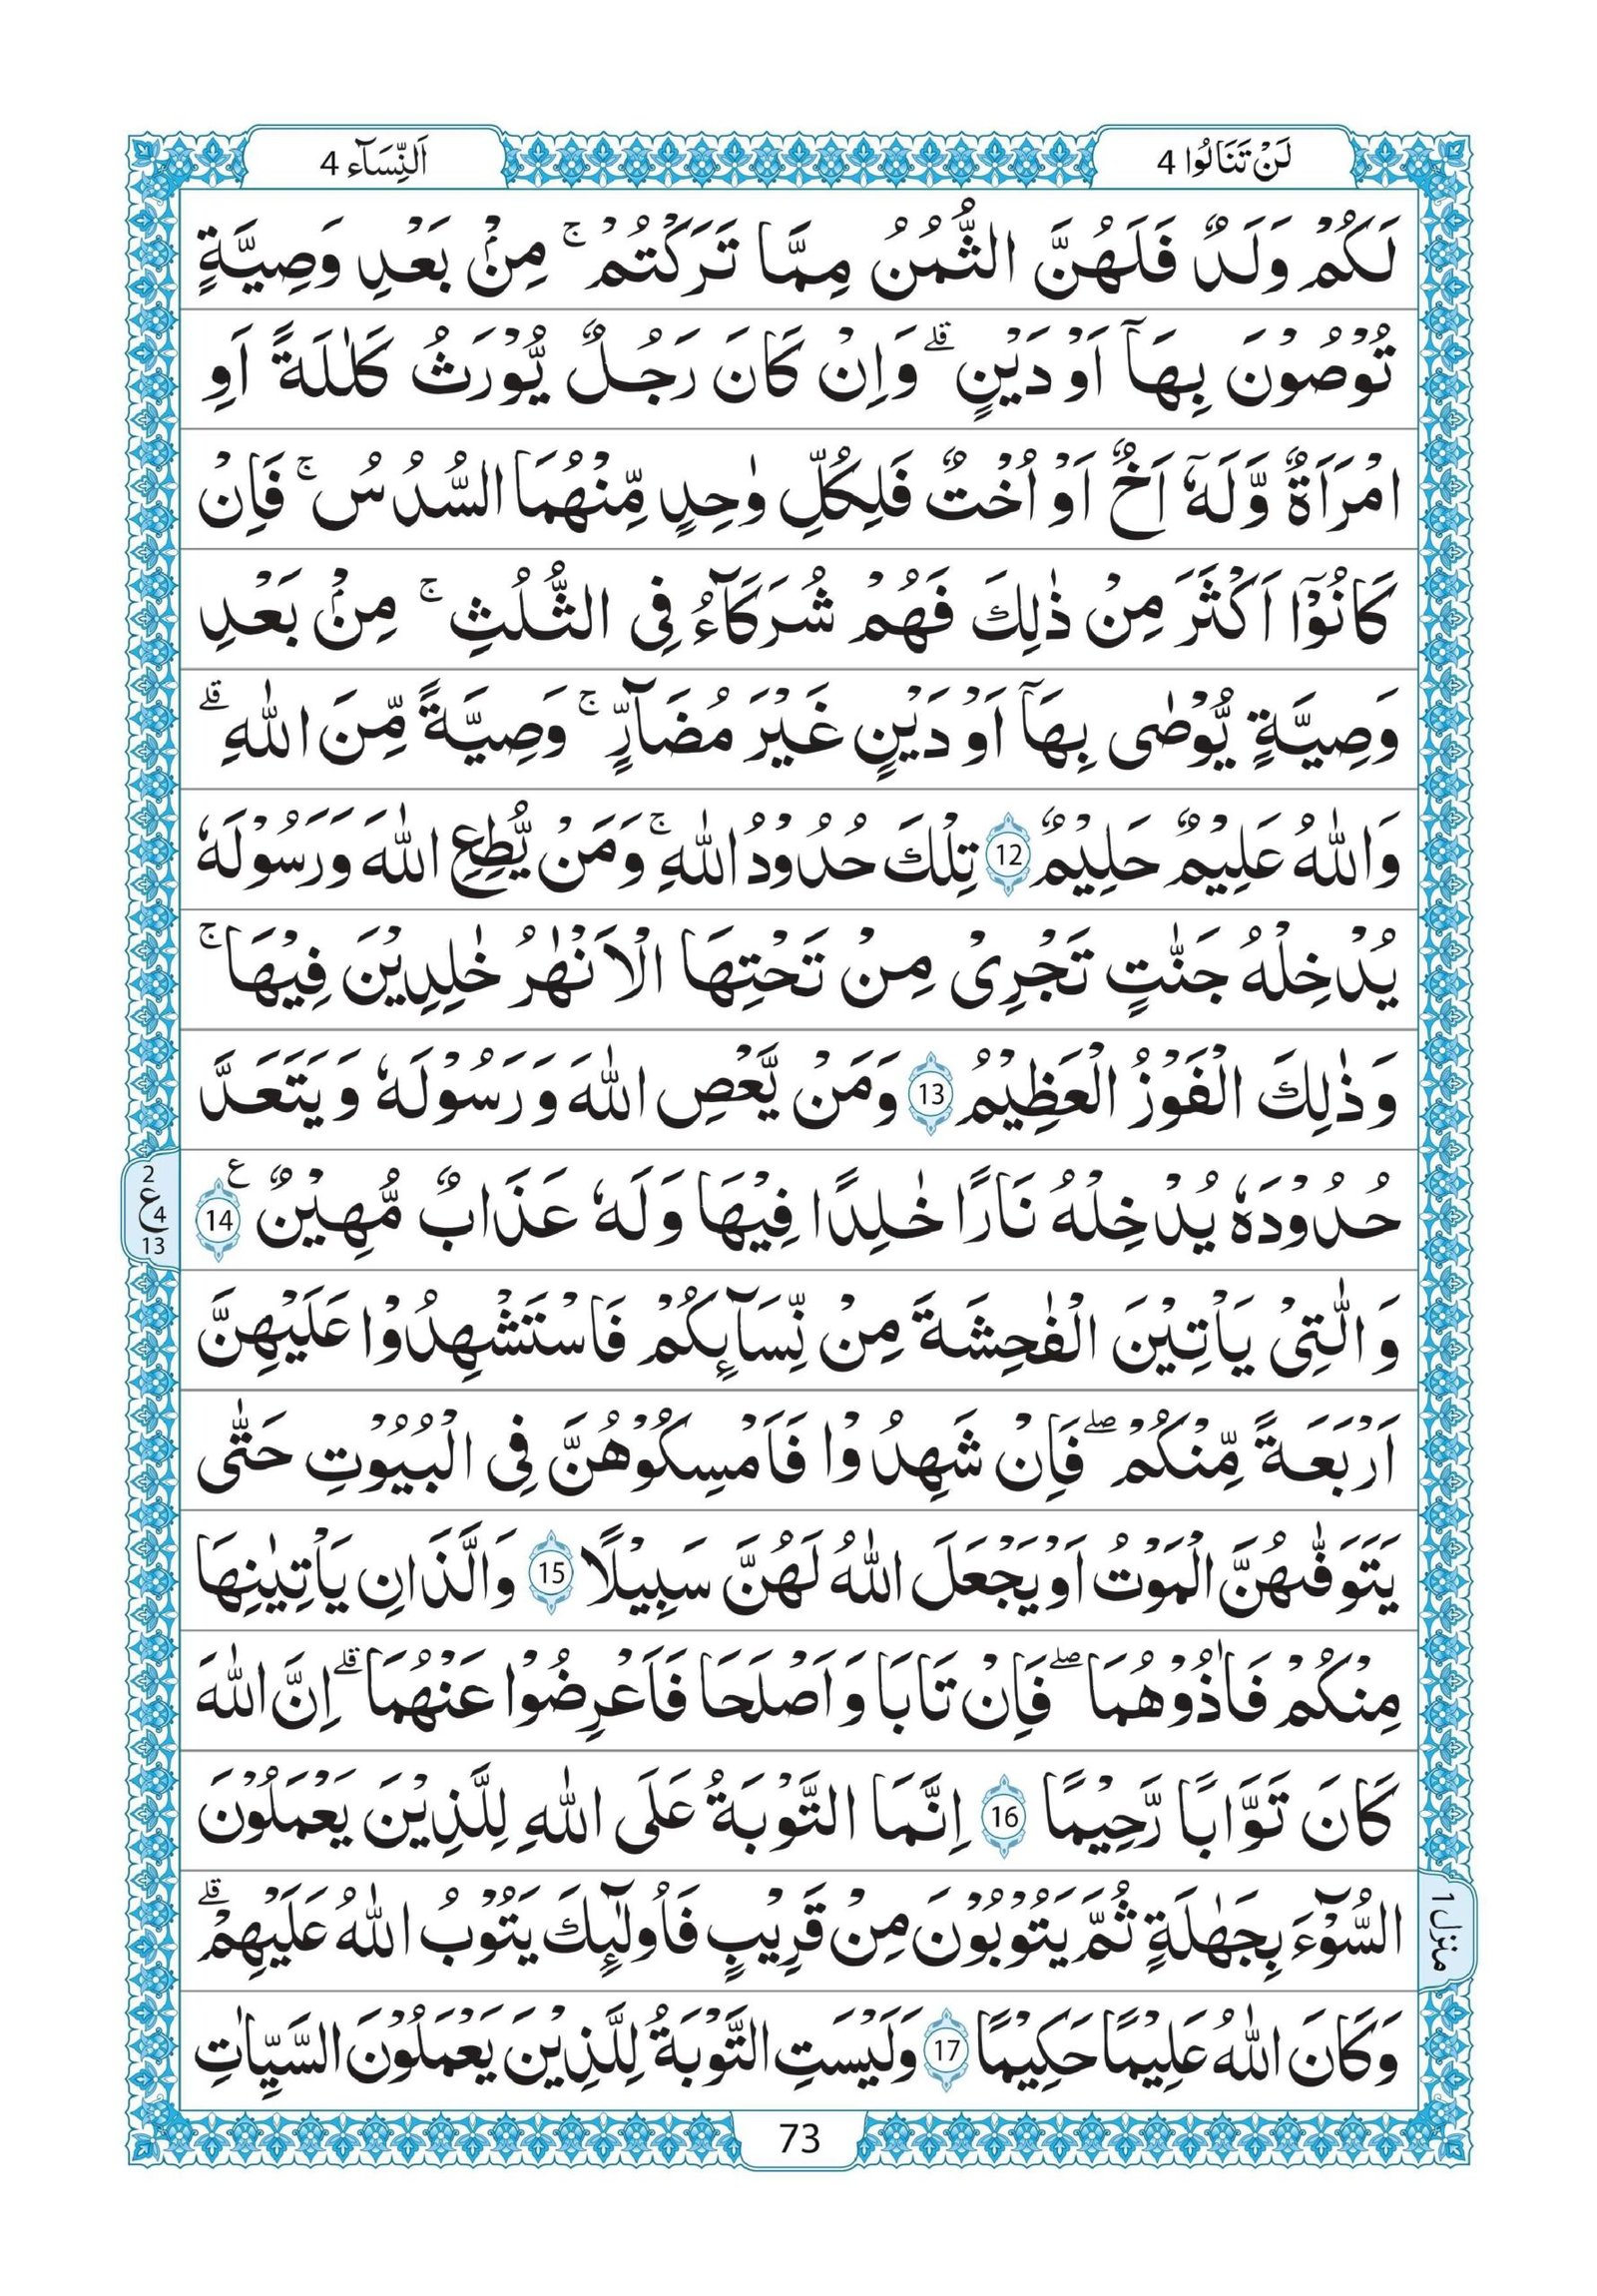 لَنْ تَنَالُوا 4
اَلنِّسَآء 4
لَكُمْ وَلَدٌ فَلَهُنَّ الثُّمُنُ مِمَّا تَرَكْتُمْ ۚ مِنْۢ بَعْدِ وَصِيَّةٍ
تُوْصُوْنَ بِهَآ اَوْ دَيْنٍ ؕ وَاِنْ كَانَ رَجُلٌ يُّوْرَثُ كَلٰلَةً اَوِ
امْرَاَةٌ وَّلَهٗٓ اَخٌ اَوْ اُخْتٌ فَلِكُلِّ وٰحِدٍ مِّنْهُمَا السُّدُسُ ۚ فَاِنْ
كَانُوْٓا اَكْثَرَ مِنْ ذٰلِكَ فَهُمْ شُرَكَآءُ فِى الثُّلُثِ ۚ مِنْۢ بَعْدِ
وَصِيَّةٍ يُّوْصٰى بِهَآ اَوْ دَيْنٍ غَيْرَ مُضَآرٍّ ۚ وَصِيَّةً مِّنَ اللّٰهِ ۗ
وَاللّٰهُ عَلِيْمٌ حَلِيْمٌ 12 تِلْكَ حُدُوْدُ اللّٰهِ ۚ وَمَنْ يُّطِعِ اللّٰهَ وَرَسُوْلَهٗ
يُدْخِلْهُ جَنّٰتٍ تَجْرِىْ مِنْ تَحْتِهَا الْاَنْهٰرُ خٰلِدِيْنَ فِيْهَا ۚ
وَذٰلِكَ الْفَوْزُ الْعَظِيْمُ 13 وَمَنْ يَّعْصِ اللّٰهَ وَرَسُوْلَهٗ وَيَتَعَدَّ
حُدُوْدَهٗ يُدْخِلْهُ نَارًا خٰلِدًا فِيْهَا وَلَهٗ عَذَابٌ مُّهِيْنٌ ع 14
2
ع 4
13
وَالّٰتِىْ يَاْتِيْنَ الْفٰحِشَةَ مِنْ نِّسَآئِكُمْ فَاسْتَشْهِدُوْا عَلَيْهِنَّ
اَرْبَعَةً مِّنْكُمْ ۖ فَاِنْ شَهِدُوْا فَاَمْسِكُوْهُنَّ فِى الْبُيُوْتِ حَتّٰى
يَتَوَفّٰىهُنَّ الْمَوْتُ اَوْ يَجْعَلَ اللّٰهُ لَهُنَّ سَبِيْلًا 15 وَالَّذَانِ يَاْتِيٰنِهَا
مِنْكُمْ فَاٰذُوْهُمَا ۖ فَاِنْ تَابَا وَاَصْلَحَا فَاَعْرِضُوْا عَنْهُمَا ۗ اِنَّ اللّٰهَ
كَانَ تَوَّابًا رَّحِيْمًا 16 اِنَّمَا التَّوْبَةُ عَلَى اللّٰهِ لِلَّذِيْنَ يَعْمَلُوْنَ
السُّوْٓءَ بِجَهٰلَةٍ ثُمَّ يَتُوْبُوْنَ مِنْ قَرِيْبٍ فَاُولٰٓئِكَ يَتُوْبُ اللّٰهُ عَلَيْهِمْ ۗ
منزل 1
وَكَانَ اللّٰهُ عَلِيْمًا حَكِيْمًا 17 وَلَيْسَتِ التَّوْبَةُ لِلَّذِيْنَ يَعْمَلُوْنَ السَّيِّاٰتِ
73